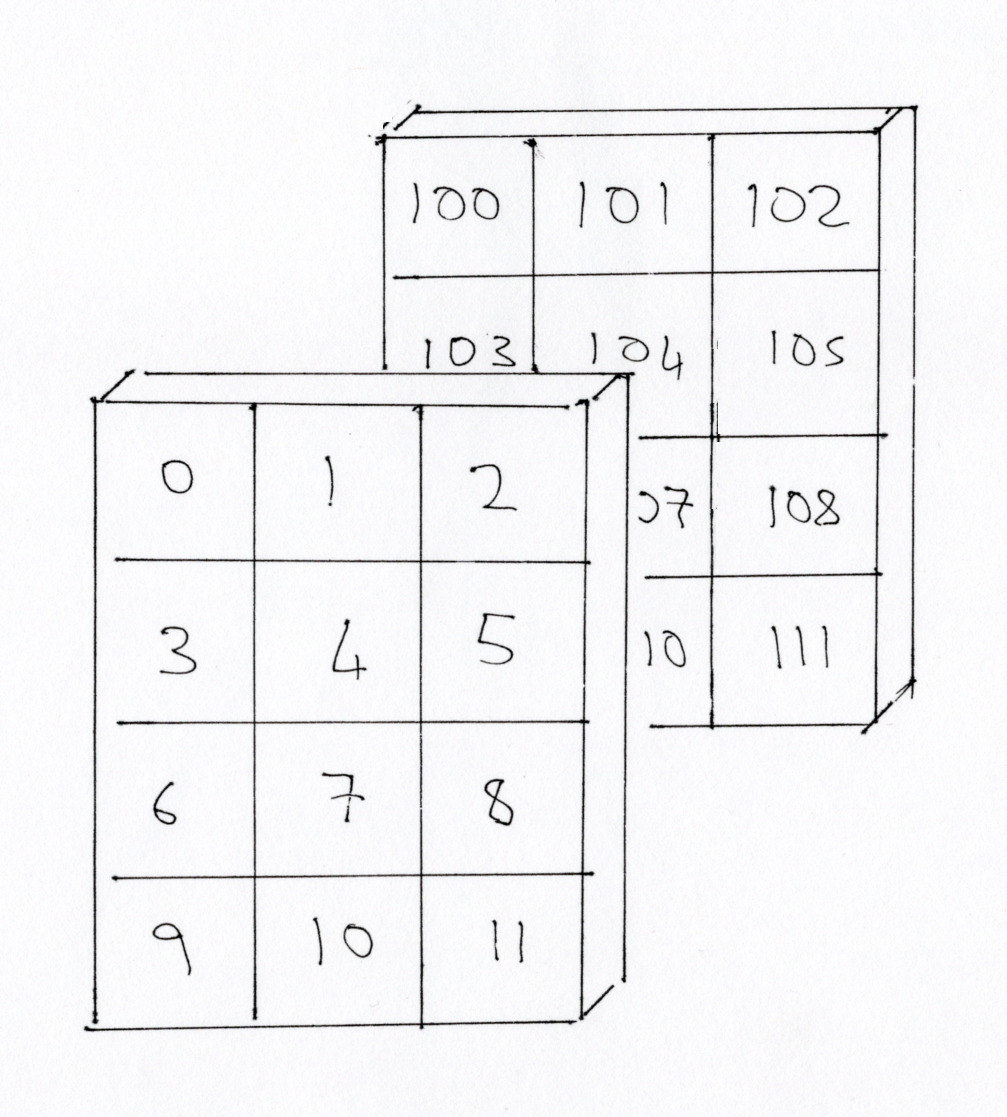 100 101 102
103 104 105
07 108
10 111
0 1 2
3 4 5
6 7 8
9 10 11